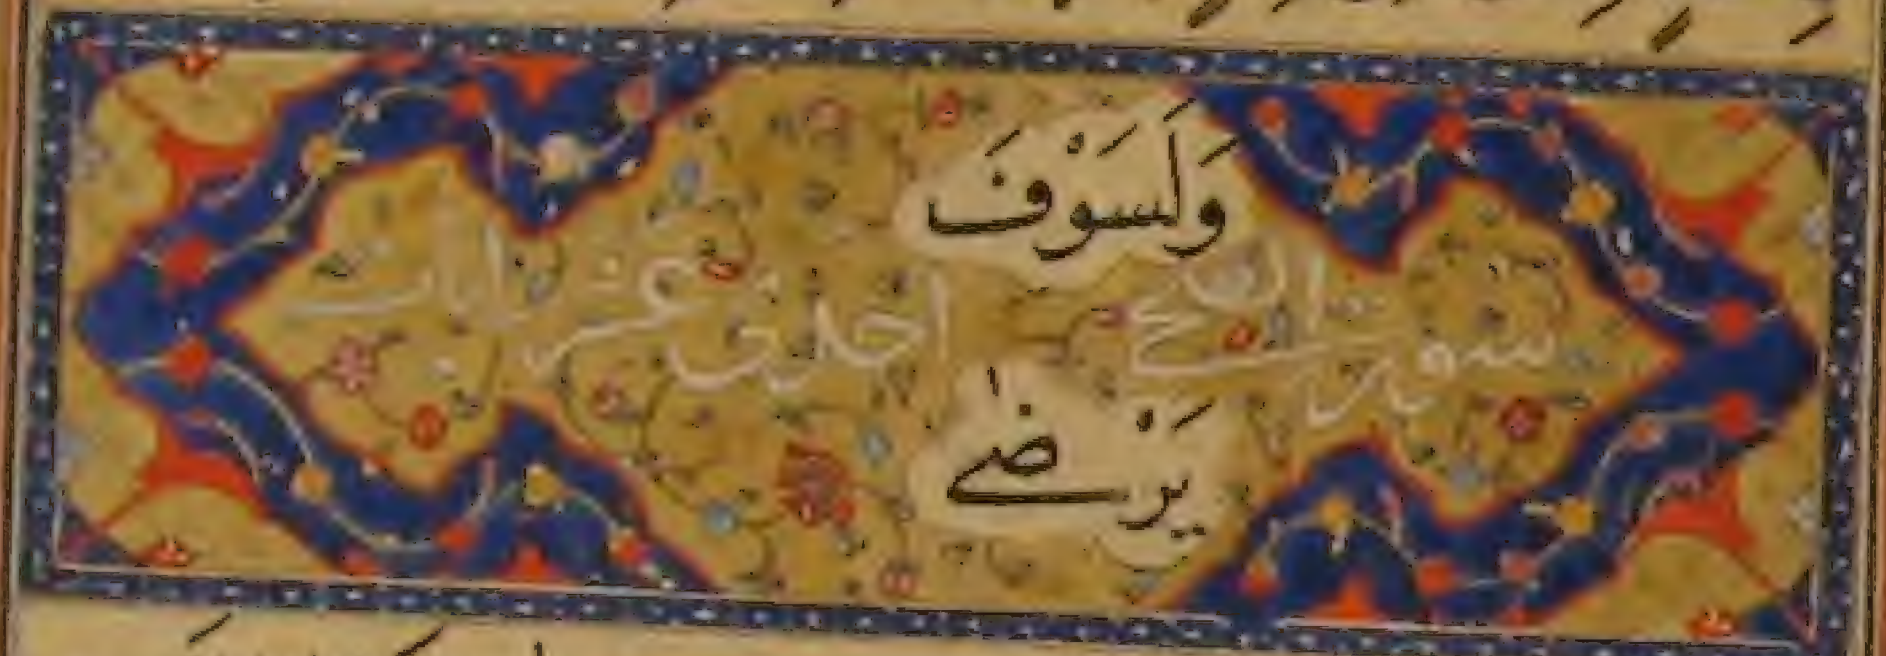 وَلَسَوْفَ
سورة الضحى احدى عشر ايات
يَرْضٰى